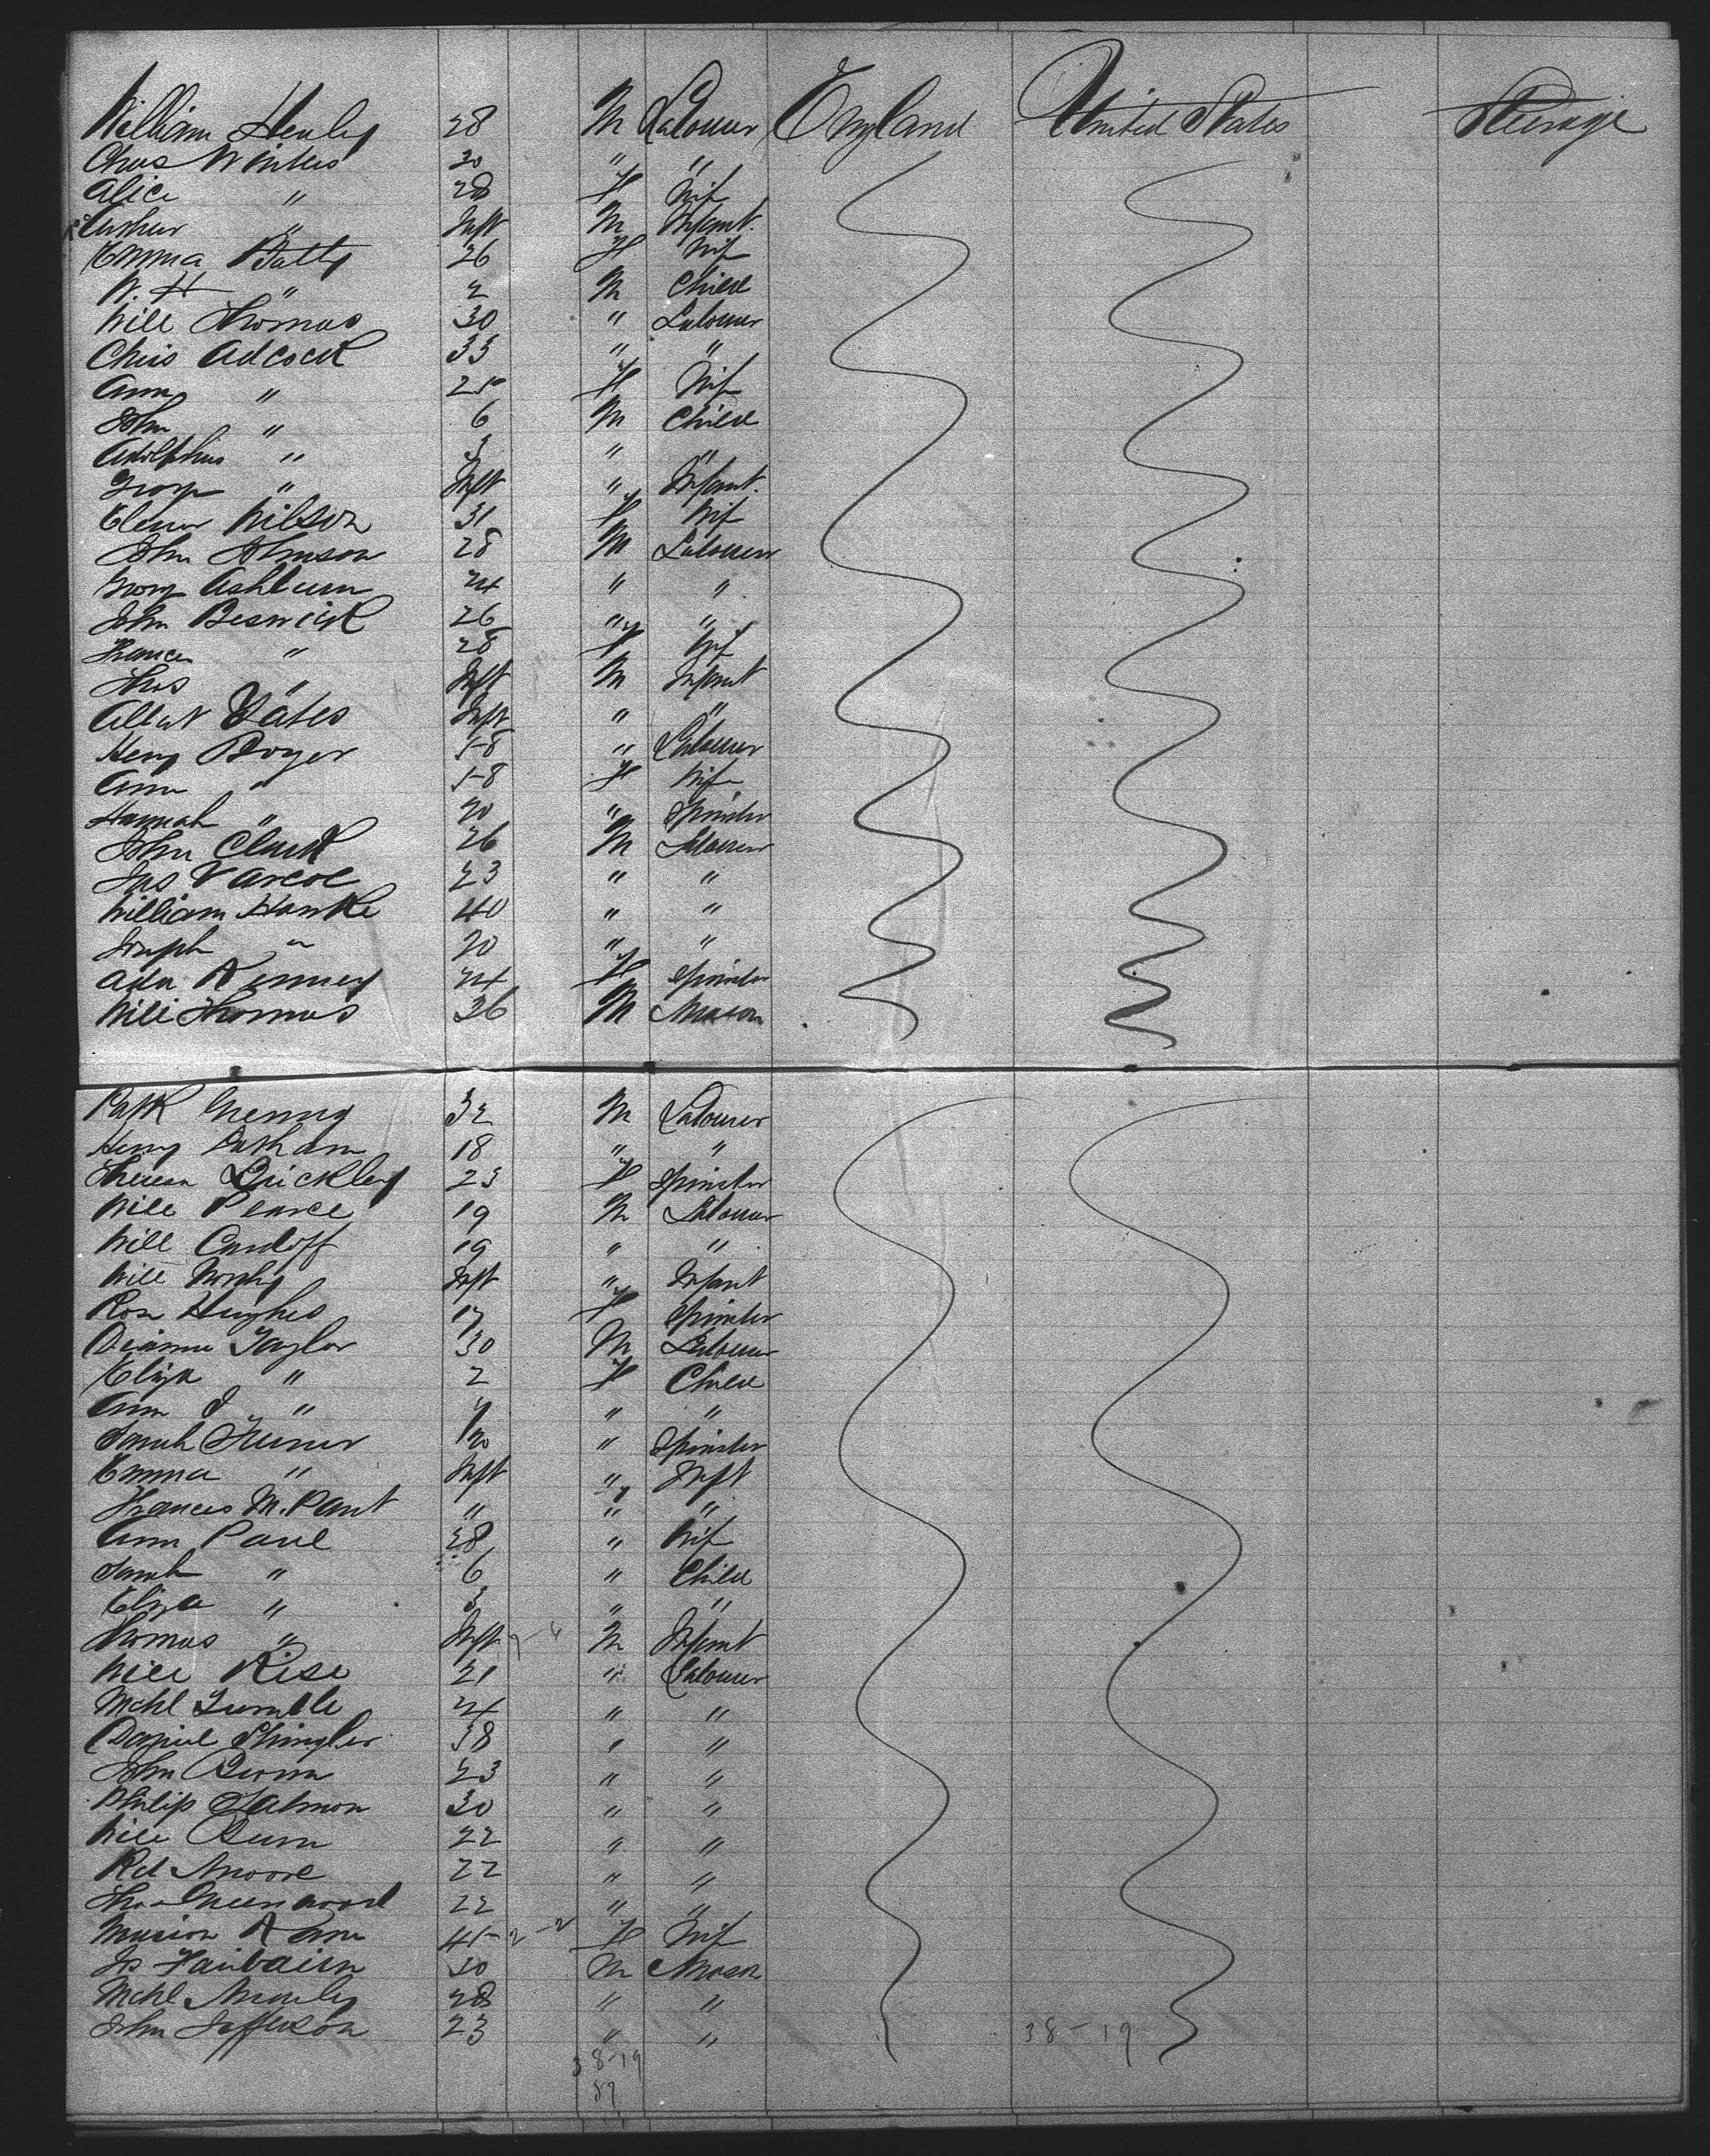 William Henley 28 M Labourer England United States Steerage
Chas Winters 30 " "
Alice " 28 F Wife
Arthur " Inft M Infant.
Emma Batty 26 F Wife
W. H " 2 M Child
Will Thomas 30 " Labourer
Chris Adcock 33 " "
Ann " 25 F Wife
John " 6 M Child
Adolphus " 3 " "
George " Inft " Infant.
Elenor Wilson 31 F Wife
John Johnson 28 M Labourer
George Ashburn 24 " "
John Beswick 26 " "
Frances " 28 F Wife
Thos " Inft M Infant
Albert Yates Inft " "
Henry Boyer 58 " Labourer
Ann " 58 F Wife
Hannah " 20 " Spinster
John Clark 26 M Labourer
Jas Varcoe 23 " "
William Hawke 40 " "
Joseph " 20 " "
Ada Kenney 24 F Spinster
Will Thomas 36 M Mason
Patk 32 M Labourer
Henry 18 " "
Theresa Quickley 23 F Spinster
Will Pearce 19 M Labourer
Will Cardiff 19 " "
Will Inft " Infant
Rose Hughes 17 F Spinster
Taylor 30 M Labourer
Eliza " 2 F Child
Ann J " " "
Sarah 20 " Spinster
Emma " Inft " Inft
Frances M. " " "
Ann Paul 28 " Wife
Sarah " 6 " Child
Eliza " 3 " "
Thomas " Inft M Infant
Will Rise 21 " Labourer
Mchl 24 " "
Daniel Shingler 38 " "
John 23 " "
Philip Salmon 30 " "
Will Burn 22 " "
Rd Moore 22 " "
Thos Greenwood 22 " "
Marion 45 F Wife
Js Fairbairn 30 M Mason
Mchl 28 " "
John Jefferson 23 " "
38-19
38-19